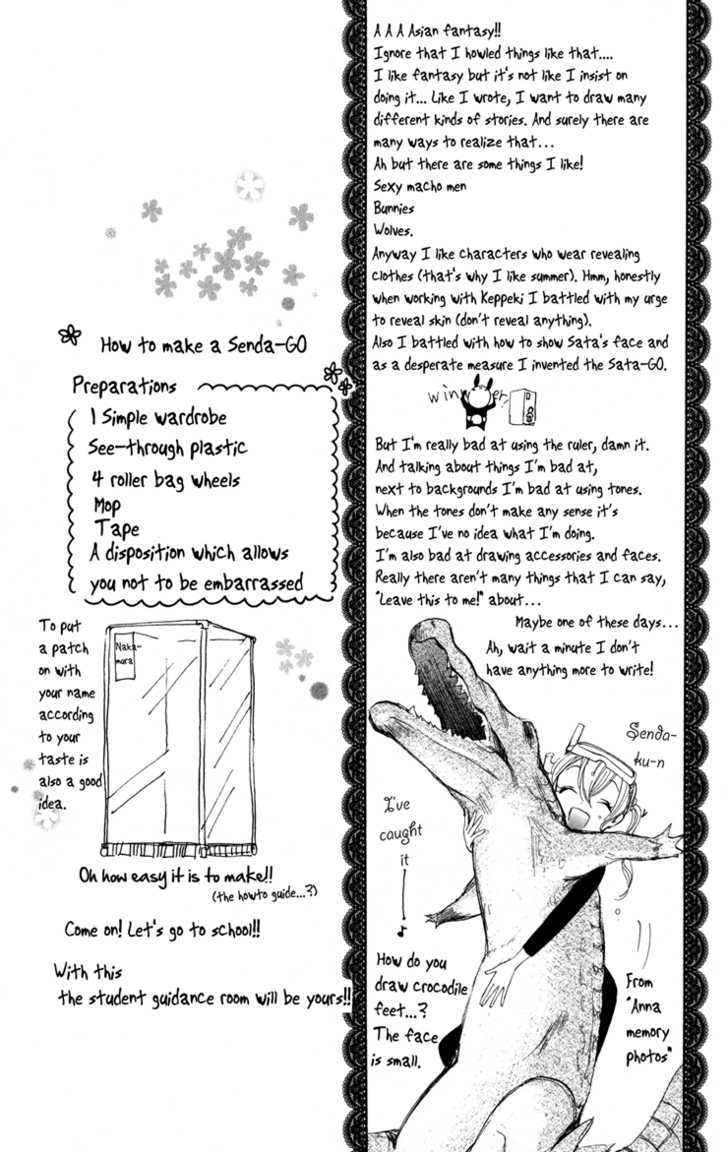 A A A Asian fantasy!!
Ignore that I howled things like that....
I like fantasy but it's not like I insist on
doing it... Like I wrote, I want to draw many
different kinds of stories. And surely there are
many ways to realize that...
Ah but there are some things I like!
Sexy macho men
Bunnies
Wolves.
Anyway I like characters who wear revealing
clothes (that's why I like summer). Hmm, honestly
when working with Keppeki I battled with my urge
to reveal skin (don't reveal anything).
Also I battled with how to show Sata's face and
as a desperate measure I invented the Sata-GO.
winner
But I'm really bad at using the ruler, damn it.
And talking about things I'm bad at,
next to backgrounds I'm bad at using tones.
When the tones don't make any sense it's
because I've no idea what I'm doing.
I'm also bad at drawing accessories and faces.
Really there aren't many things that I can say,
"Leave this to me!" about...
Maybe one of these days...
Ah, wait a minute I don't
have anything more to write!
Senda-
ku-n
I've
caught
it
How do you
draw crocodile
feet...?
The face
is small.
From
"Anna
memory
photos"
How to make a Senda-GO
Preparations
1 Simple wardrobe
See-through plastic
4 roller bag wheels
Mop
Tape
A disposition which allows
you not to be embarrassed
To put
a patch
on with
your name
according
to your
taste is
also a good
idea.
Naka-
mura
Oh how easy it is to make!!
(the howto guide...?)
Come on! Let's go to school!!
With this
the student guidance room will be yours!!